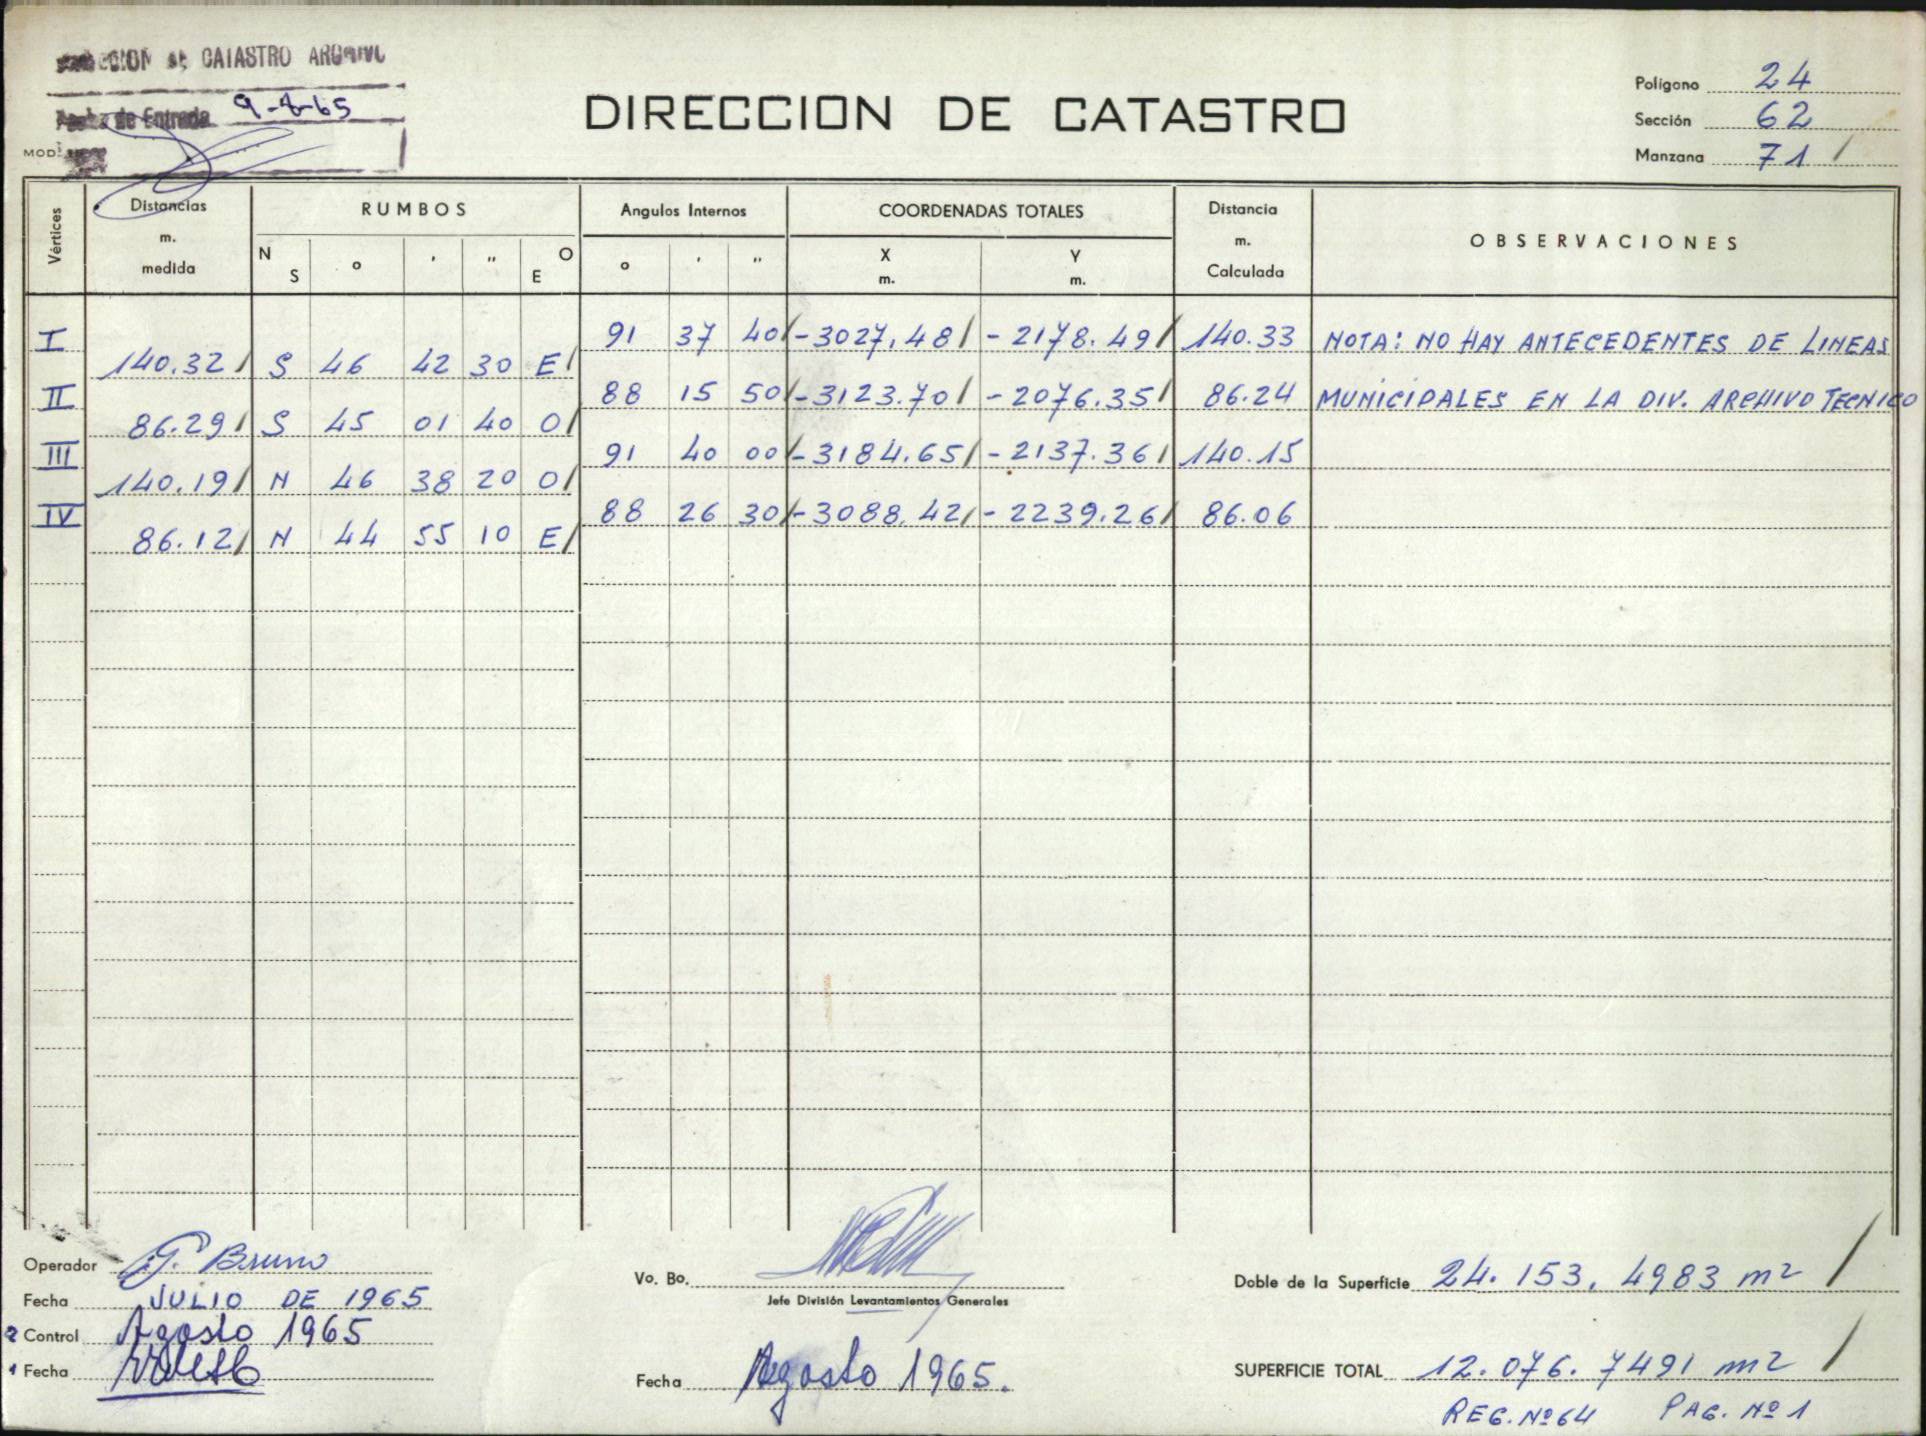 DIRECCION DE CATASTRO ARCHIVO
Fecha de Entrada 9-8-65
DIRECCION DE CATASTRO
Polígono 24
Sección 62
Manzana 71 /
Vértices
Distancias m. medida
RUMBOS
N S ° ' " O E
Angulos Internos
° ' "
COORDENADAS TOTALES
X m. Y m.
Distancia m. Calculada
OBSERVACIONES
I 91 37 40/ -3027,48/ -2178.49/ 140.33 NOTA: NO HAY ANTECEDENTES DE LINEAS
140.32/ S 46 42 30 E/
II 88 15 50/ -3123.70/ -2076.35/ 86.24 MUNICIPALES EN LA DIV. ARCHIVO TECNICO
86.29/ S 45 01 40 O/
III 91 40 00/ -3184.65/ -2137.36/ 140.15
140.19/ N 46 38 20 O/
IV 88 26 30/ -3088.42/ -2239.26/ 86.06
86.12/ N 44 55 10 E/
Operador G. Bruno
Fecha JULIO DE 1965
2 Control Agosto 1965
1 Fecha
Vo. Bo.
Jefe División Levantamientos Generales
Fecha Agosto 1965.
Doble de la Superficie 24.153,4983 m2 /
SUPERFICIE TOTAL 12.076.7491 m2 /
REG. Nº 64 PAG. Nº 1